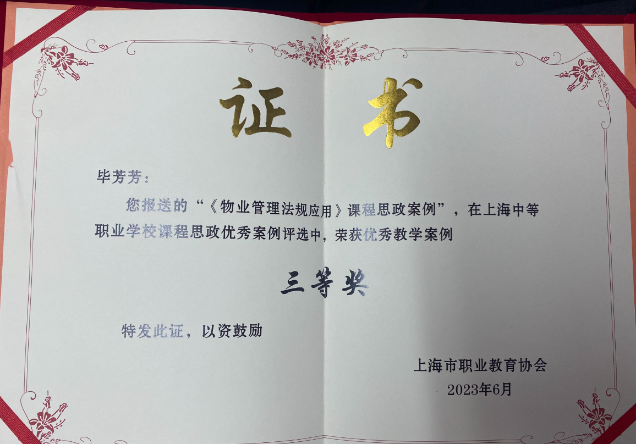 证书
毕芳芳:
您报送的“《物业管理法规应用》课程思政案例”,在上海中等
职业学校课程思政优秀案例评选中,荣获优秀教学案例
三等奖
特发此证,以资鼓励
上海市职业教育协会
2023年6月